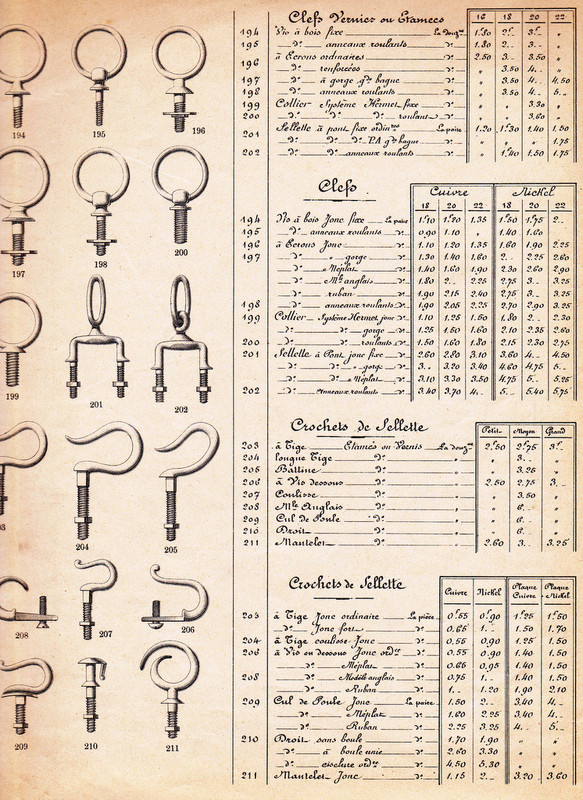 194
195
196
197
198
200
199
201
202
204
205
208
207
206
209
210
211
Clefs Vernies ou Etamées 16 18 20 22
194 Vis à bois fixe La douz.ne 1.80 2. 3. "
195 d.o anneaux roulants d.o 1.80 2. 3. "
196 à Ecrous ordinaires d.o 2.50 3. 3.50 "
d.o renforcées d.o " 3.50 4. "
197 d.o à gorge g.de bague d.o " 3.50 4. 4.50
198 d.o anneaux roulants d.o " 3.50 4. 5.
199 Collier Système Hermet fixe d.o " " 3.30 "
200 d.o d.o d.o roulant d.o " " 3.60 "
201 Sellette à pont fixe ordin.re La paire 1.20 1.30 1.40 1.50
d.o d.o d.o P.A g.de bague d.o " " " 1.75
202 d.o d.o anneaux roulants d.o " 1.40 1.50 1.75
Clefs Cuivre Nickel
18 20 22 18 20 22
194 Vis à bois Jonc fixe La paire 1.10 1.20 1.35 1.50 1.75 2.
195 d.o anneaux roulants d.o 0.90 1.10 " 1.40 1.60
196 à Ecrous Jonc d.o 1.10 1.20 1.35 1.60 1.90 2.25
197 d.o " gorge d.o 1.30 1.40 1.60 2. 2.25 2.60
d.o " Méplat d.o 1.40 1.60 1.90 2.30 2.60 2.90
d.o " M.le anglais d.o 1.80 2. 2.25 2.75 3. 3.25
d.o " ruban d.o 1.90 2.15 2.40 2.75 3. 3.25
198 d.o anneaux roulants d.o 1.90 2.05 2.25 2.70 2.90 3.25
199 Collier Système Hermet jonc d.o 1.10 1.25 1.50 1.80 2. 2.30
d.o d.o gorge d.o 1.25 1.50 1.60 2.10 2.35 2.60
200 d.o d.o roulants d.o 1.50 1.60 1.80 2.15 2.30 2.75
201 Sellette à Pont jonc fixe d.o 2.60 2.80 3.10 3.60 4. 4.50
d.o d.o " gorge d.o 3. 3.20 3.40 4.60 4.75 5.
d.o d.o " Méplat d.o 3.10 3.30 3.50 4.75 5. 5.25
202 d.o d.o anneaux roulants d.o 3.40 3.70 4. 5. 5.40 5.75
Crochets de Sellette Petit Moyen Grand
203 à Tige Etamés ou Vernis La douz.ne 2.50 2.75 3.
204 longue Tige d.o " " 3. "
205 Battine d.o " " 3.25 "
206 à Vis dessous d.o " 2.50 2.75 3.
207 Coulisse d.o " " 3.50 "
208 M.le Anglais d.o " " 6. "
209 Cul de Poule d.o " " 6. "
210 Droit d.o " " 6. "
211 Mantelet d.o " 2.60 3. 3.25
Crochets de Sellette Cuivre Nickel Plaqué Cuivre Plaqué Nickel
203 à Tige Jonc ordinaire La pièce 0.55 0.90 1.25 1.50
d.o Jonc fort d.o 0.65 1. 1.50 1.70
204 à Tige coulisse Jonc d.o 0.55 0.90 1.25 1.50
206 à Vis en dessous Jonc ord.re d.o 0.55 0.90 1.40 1.50
d.o Méplat d.o 0.65 0.95 1.40 1.50
208 d.o Modèle anglais d.o 0.75 1. 1.40 1.50
d.o Ruban d.o 1. 1.20 1.90 2.10
209 Cul de Poule Jonc La paire 1.50 2. 3.40 4.
d.o Méplat d.o 1.60 2.25 3.40 4.
d.o Ruban d.o 2.25 3.25 4. 5.
210 Droit sans boule d.o 1.70 1.90 " "
d.o à boule unie d.o 2.60 3.30 " "
d.o ciselure ord.re d.o 4.50 5.30 " "
211 Mantelet Jonc d.o 1.15 2. 3.20 3.60